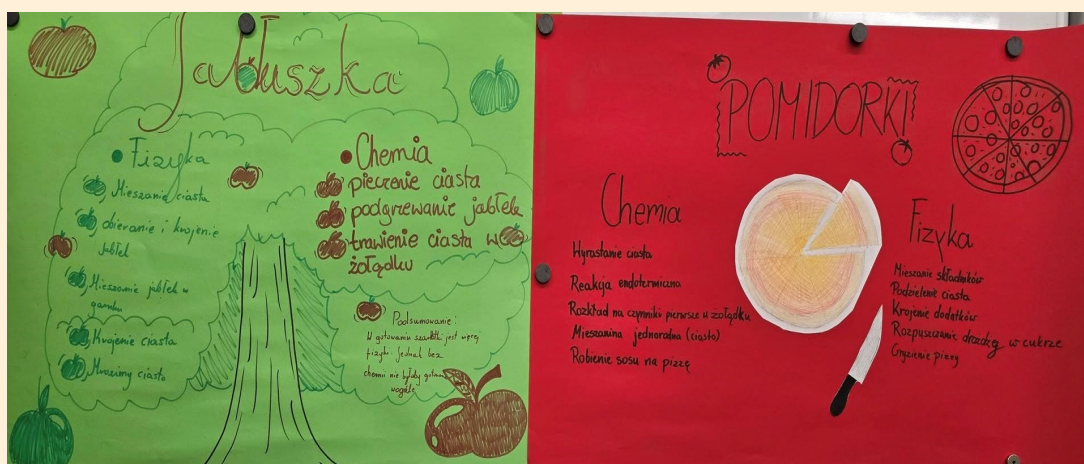 Jabłuszka
Fizyka
Mieszanie ciasta
obieranie i krojenie
jabłek
Mieszanie jabłek w
garnku
Krojenie ciasta
Mrozimy ciasto
Chemia
pieczenie ciasta
podgrzewanie jabłek
trawienie ciasta w
żołądku
Podsumowanie:
W gotowaniu jest więcej
fizyki. Jednak bez
chemii nie byłoby
wogóle
POMIDORKI
Chemia
Wyrastanie ciasta
Reakcja endotermiczna
Rozkład na czynniki pierwsze w żołądku
Mieszanina jednorodna (ciasto)
Robienie sosu na pizzę
Fizyka
Mieszanie składników
Podzielenie ciasta
Krojenie dodatków
Rozpuszczanie drożdży w cukrze
Gryzienie pizzy